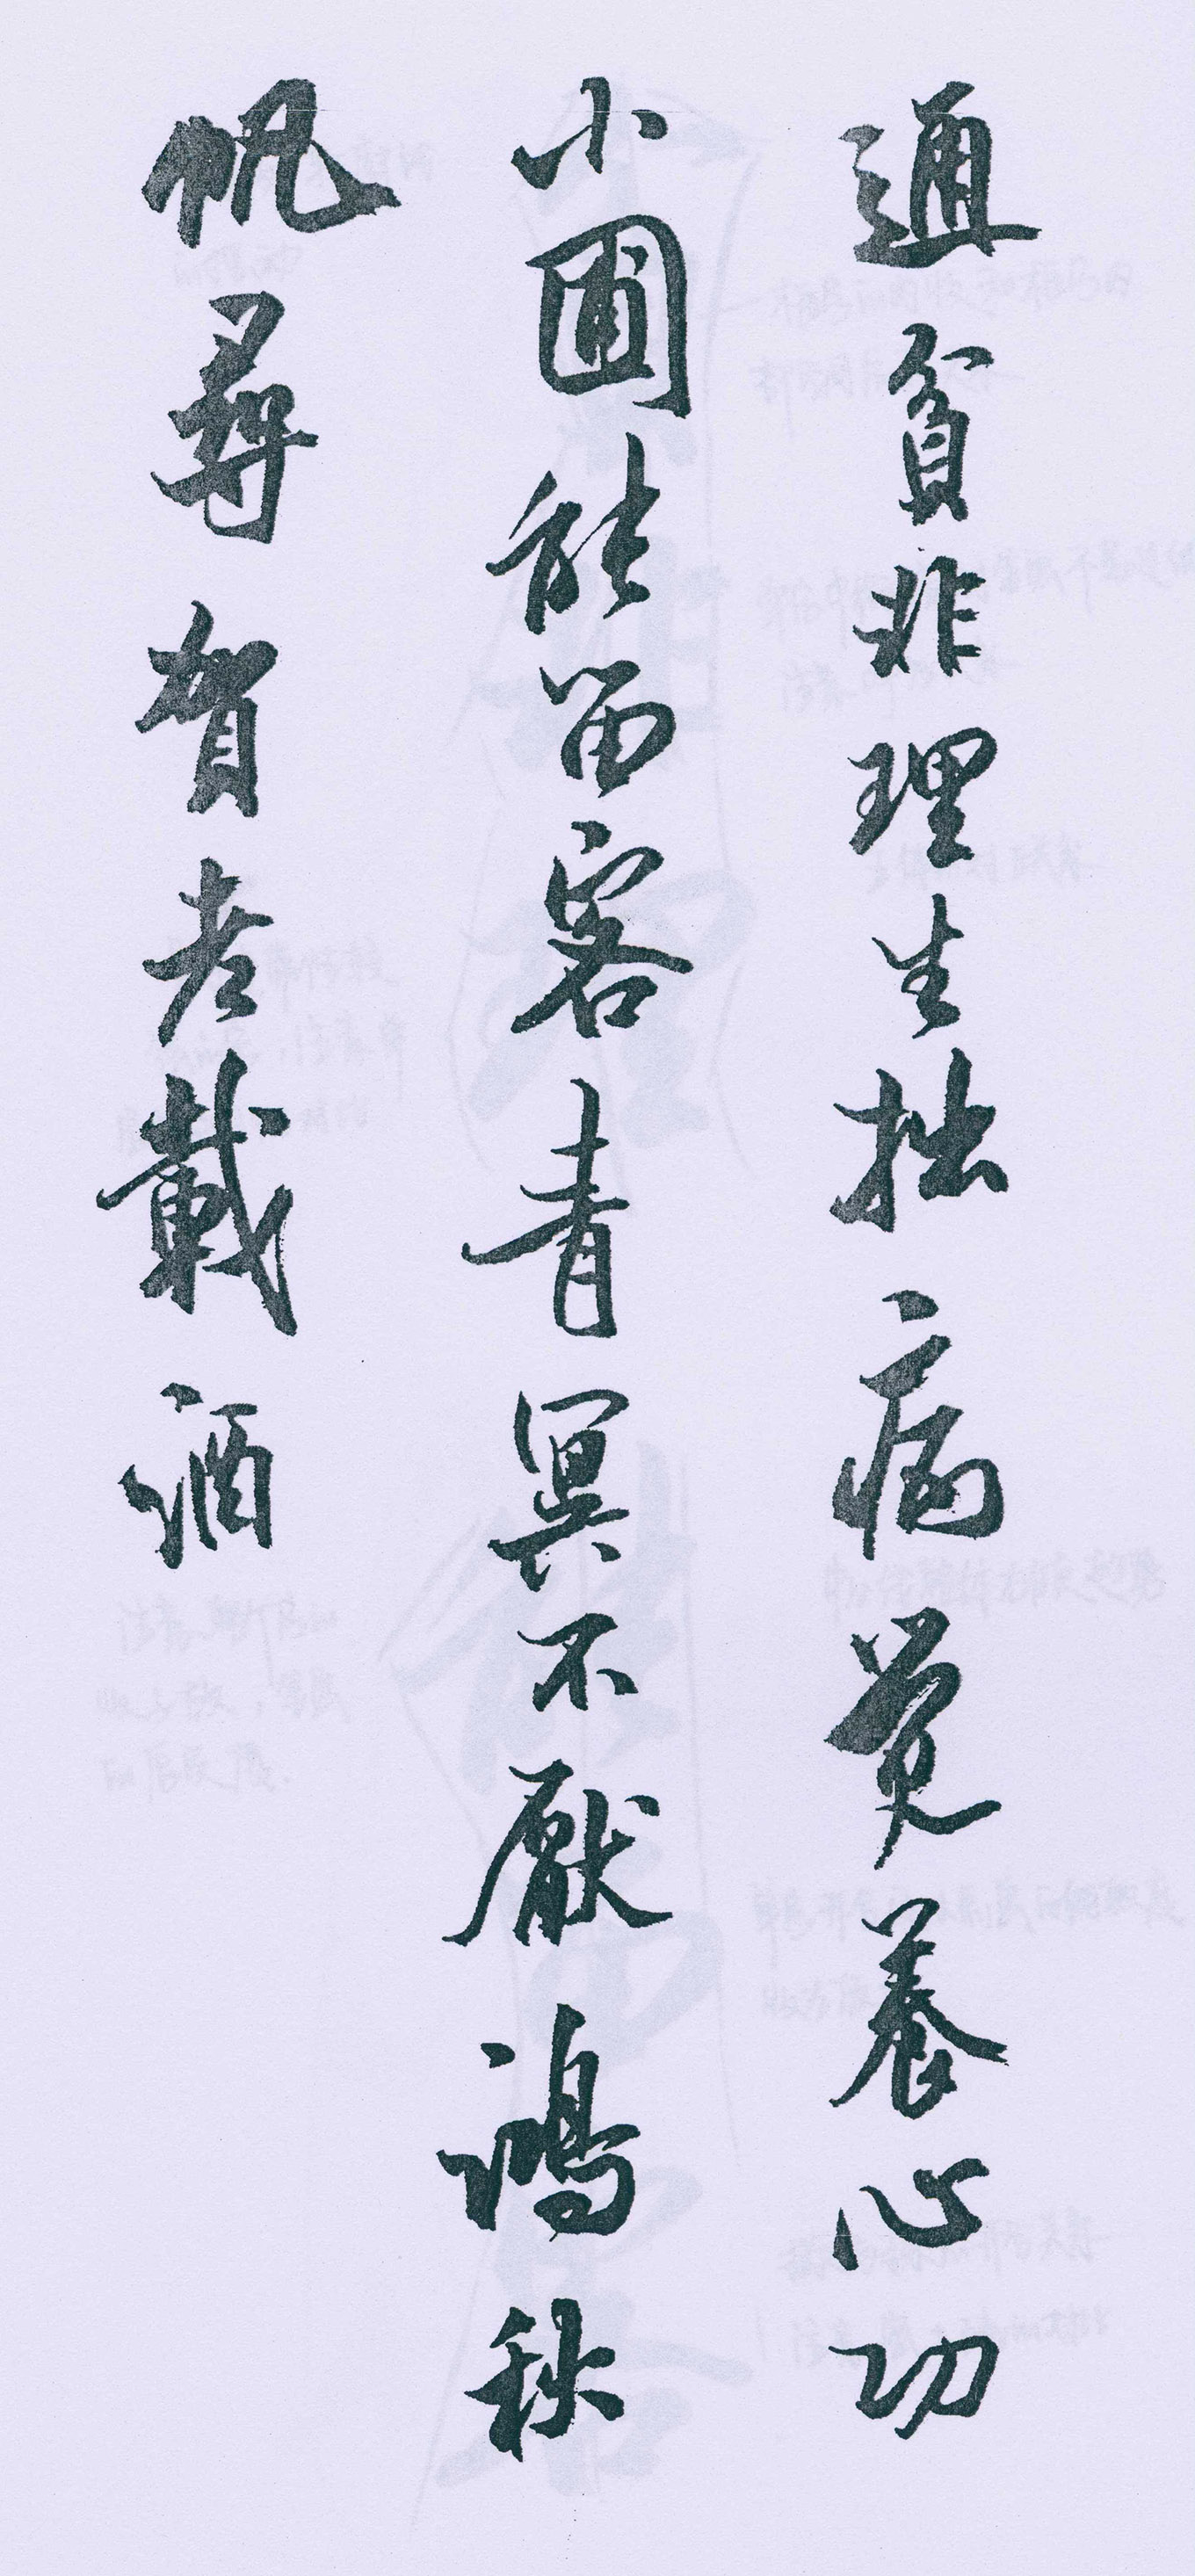 適貧非理生拙病覺養心功
小圃能留客青冥不厭鴻秋
帆尋賀老載酒